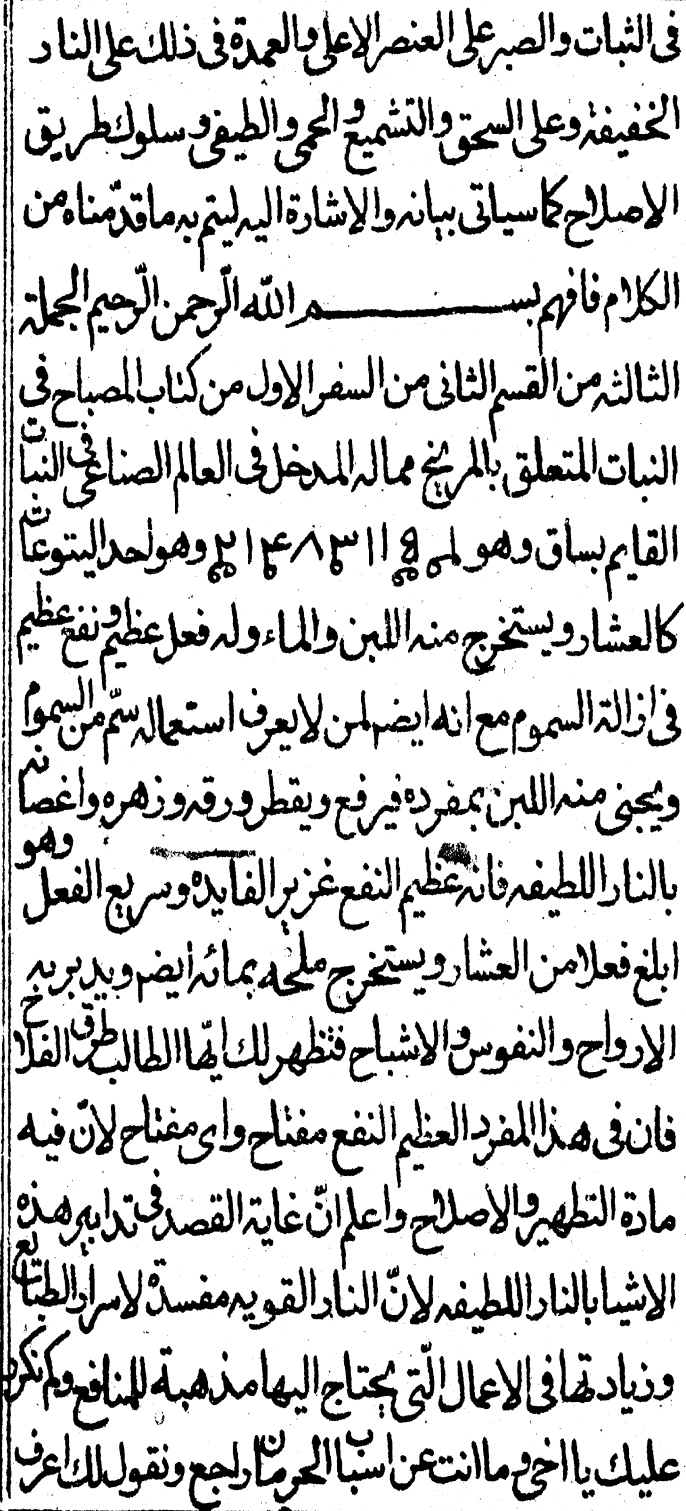 فى الثبات والصبر على العنصر الاعلى والعمدة فى ذلك على النار
الخفيفة وعلى السحق والتشميع والحمى والطيفى وسلوك طريق
الاصلاح كما سياتى بيانه والاشارة اليه ليتم به ما قدّمناه من
الكلام فافهم بسـم الله الرّحمن الرّحيم الجملة
الثالثه من القسم الثانى من السفر الاول من كتاب المصباح فى
النبات المتعلق بالمريخ مما له المدخل فى العالم الصناعى فى النبات
القايم بساق وهو وهو احد اليتوعات
كالعشار ويستخرج منه اللبن والماء وله فعل عظيم ونفع عظيم
فى ازالة السموم مع انه ايضا لمن لا يعرف استعماله سمّ من السموم
ويجنى منه اللبن بمفرده فيرفع ويقطر ورقه وزهره واغصانه
بالنار اللطيفه فانه عظيم النفع غزير الفايده وسريع الفعل وهو
ابلغ فعلا من العشار ويستخرج ملحه بمائه ايضا ويدبر به
الارواح والنفوس والاشباح فتظهر لك ايّها الطالب طرق الفلاح
فان فى هذا المفرد العظيم النفع مفتاح واى مفتاح لانّ فيه
مادة التطهير والاصلاح واعلم انّ غاية القصد فى تدابير هذه
الاشيا بالنار اللطيفه لانّ النار القويه مفسدة لاسرار الطبائع
وزيادتها فى الاعمال الّتى يحتاج اليها مذهبة للمنافع وكم نكرر
عليك يا اخى وما انت عن اسباب الحرمان راجع ونقول لك اعرف